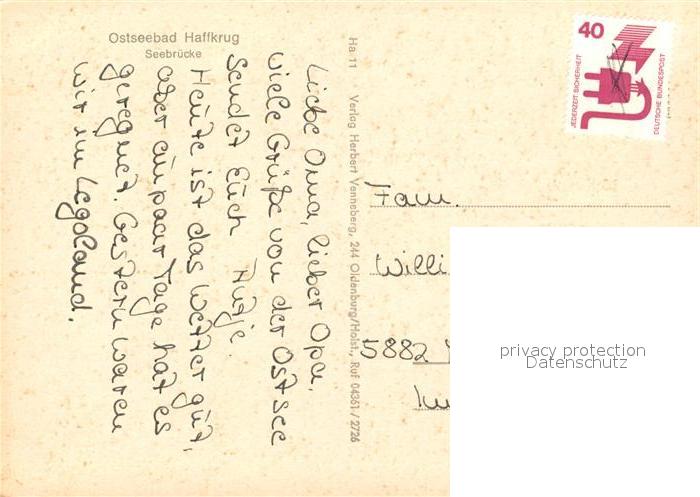 Ostseebad Haffkrug
Seebrücke
Liebe Oma, lieber Opa.
Viele Grüße von der Ostsee
sendet Euch
Heute ist das Wetter gut,
aber ein paar Tage hat es
geregnet. Gestern waren
wir im Legoland.
Ha 11 Verlag Herbert Venneberg, 244 Oldenburg/Holst., Ruf 04361/2726
40
JEDERZEIT SICHERHEIT
DEUTSCHE BUNDESPOST
Fam.
Willi
5882
privacy protection
Datenschutz